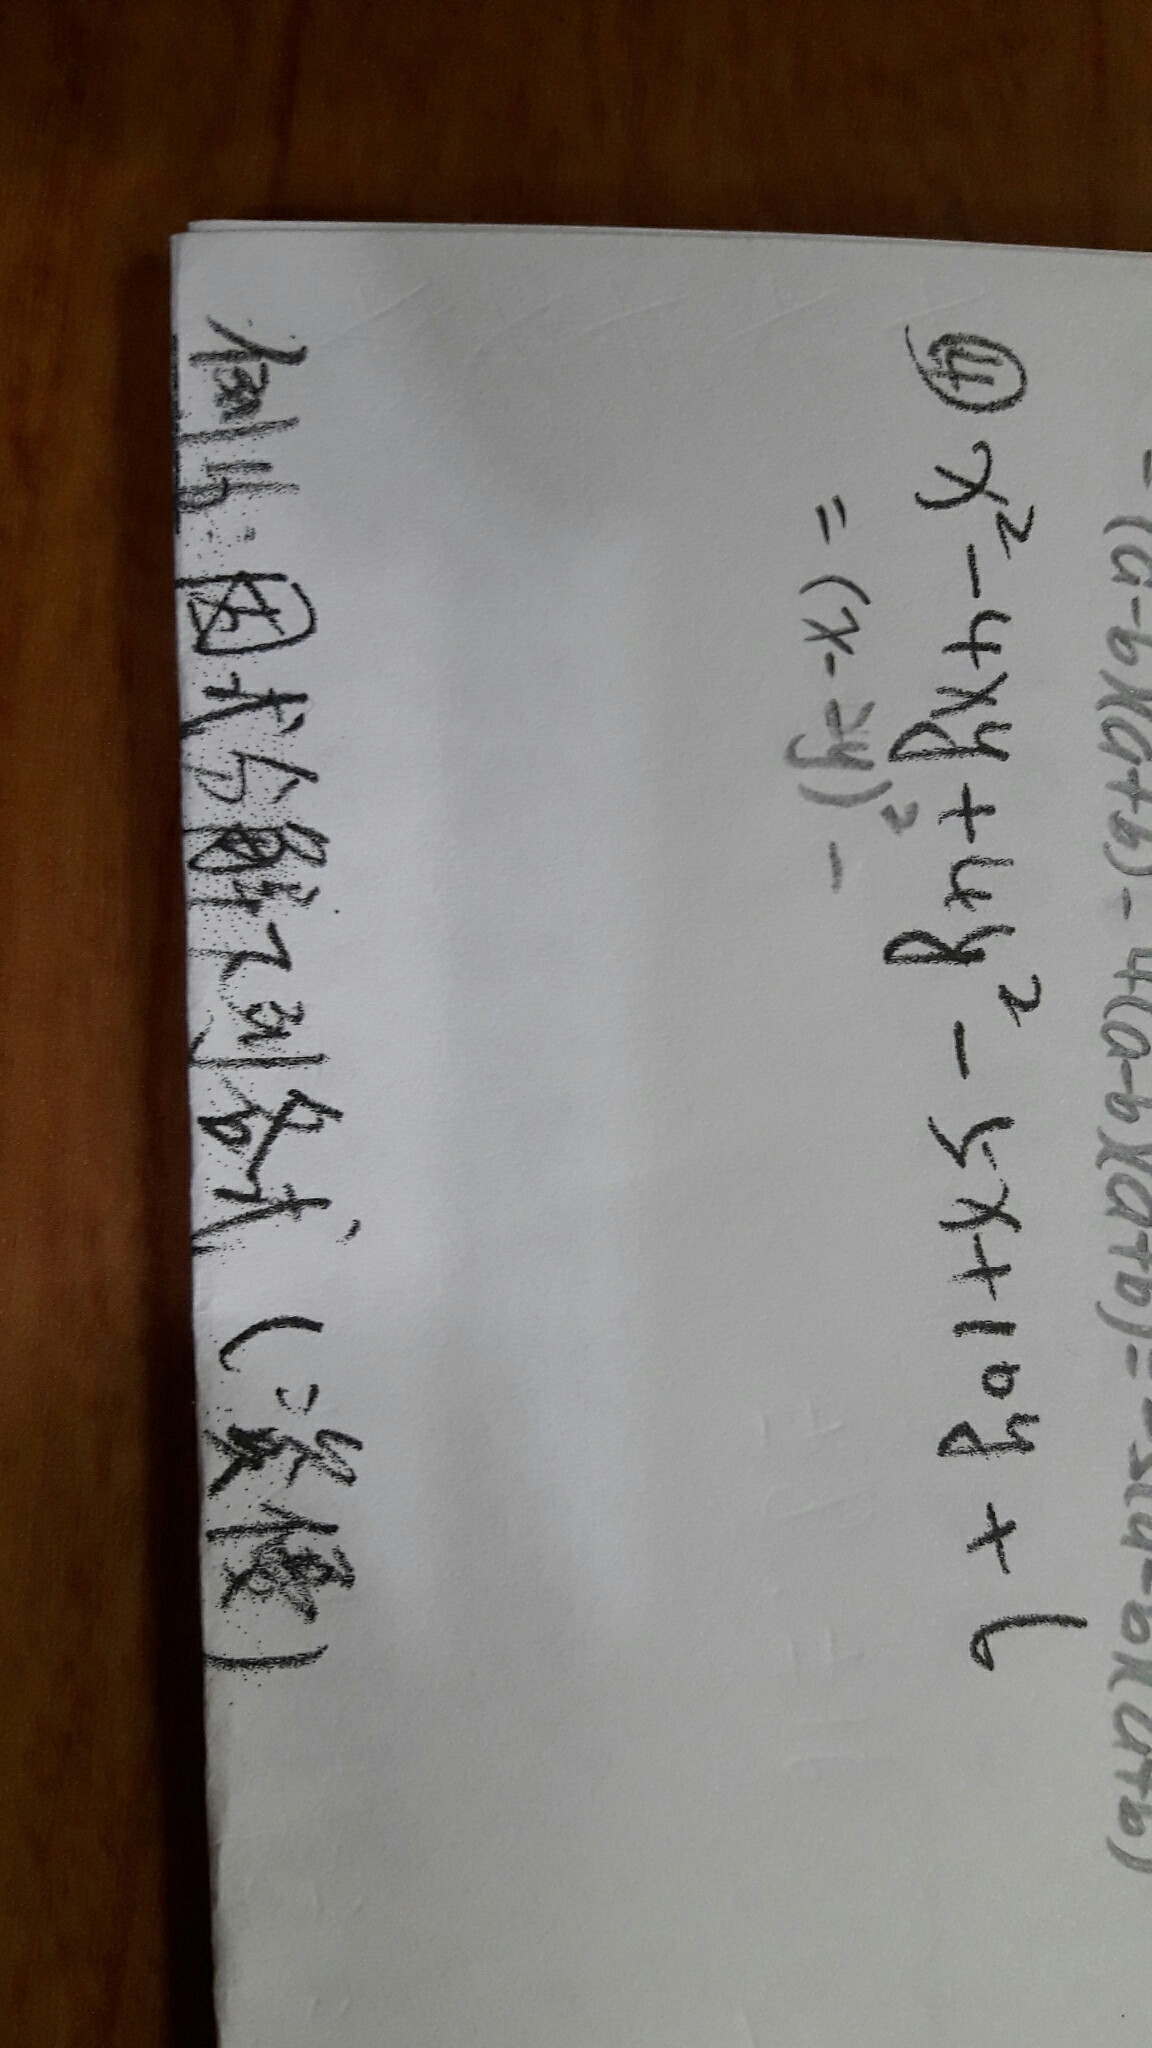 = (a-b)(a+b) - 4(a-b)(a+b) = -3(a-b)(a+b)
④ x² - 4xy + 4y² - 5x + 10y + 6
= (x-2y)² -
因式分解下列各式, (二次